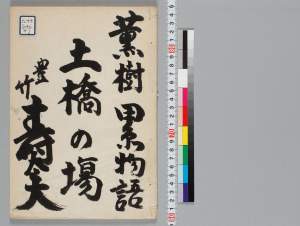 薫樹累物語
土橋の場
豊竹寿太夫